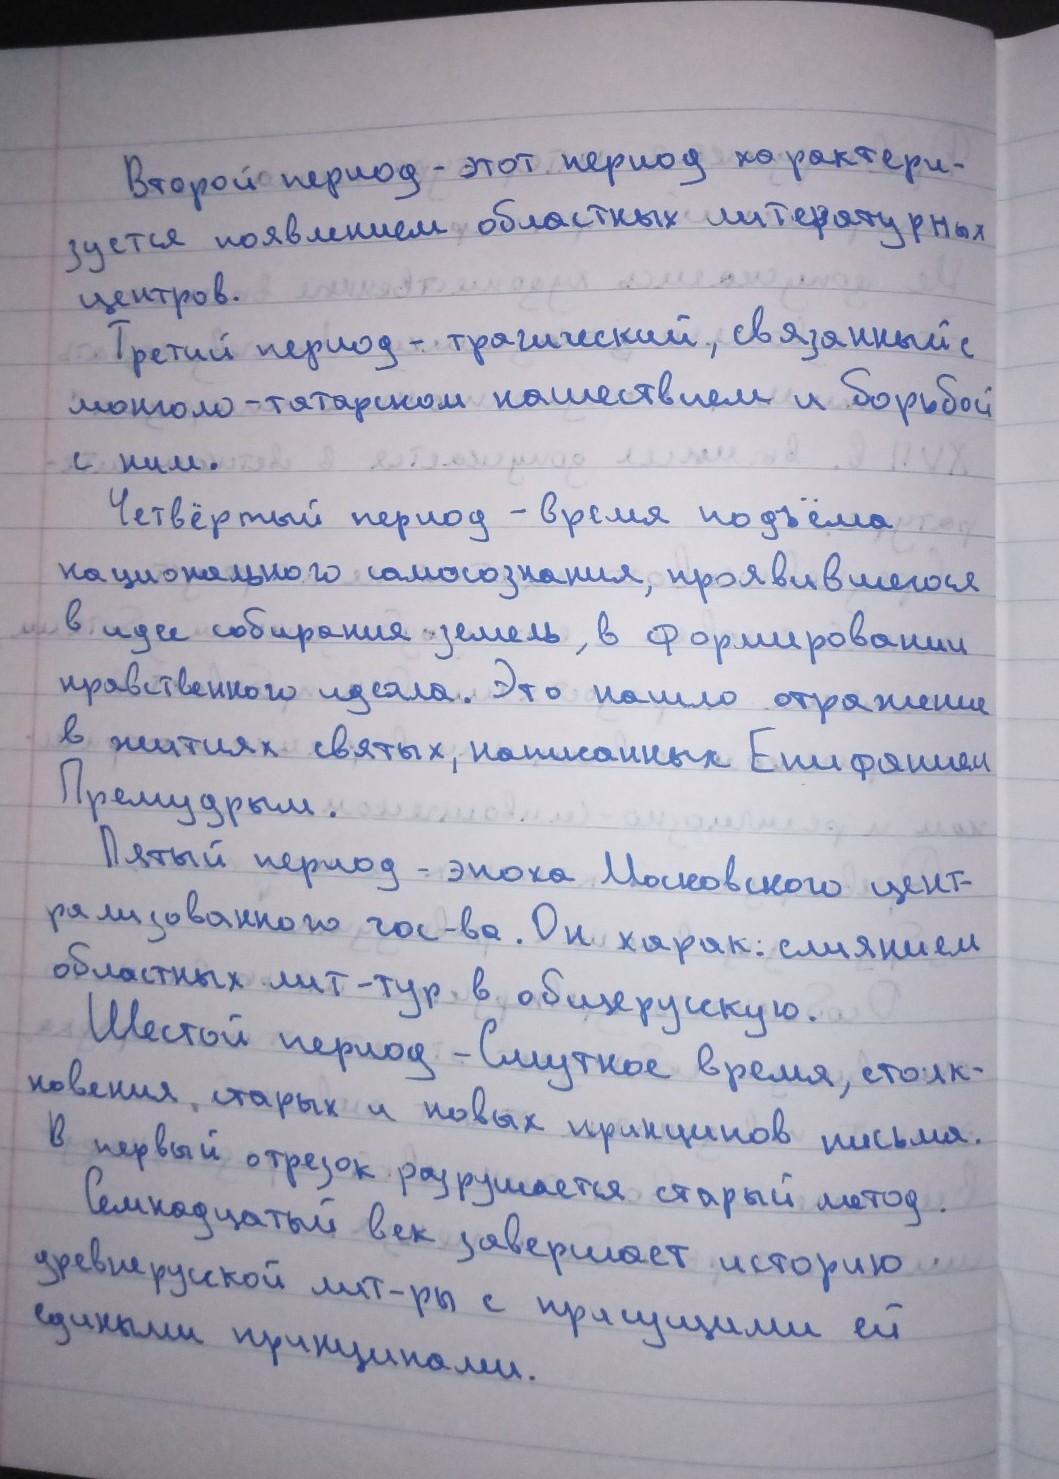 Второй период - этот период характери-
зуется появлением областных литературных
центров.
Третий период - трагический, связанный с
монголо-татарском нашествием и борьбой
с ним.
Четвёртый период - время подъёма
национального самосознания, проявившегося
в идее собирания земель, в формировании
нравственного идеала. Это нашло отражение
в житиях святых, написанных Епифанием
Премудрым.
Пятый период - эпоха Московского цент-
рализованного гос-ва. Он харак: слиянием
областных лит-тур в общерусскую.
Шестой период - Смутное время, столк-
новения старых и новых принципов письма.
В первый отрезок разрушается старый метод.
Семнадцатый век завершает историю
древнерусской лит-ры с присущими ей
едиными принципами.